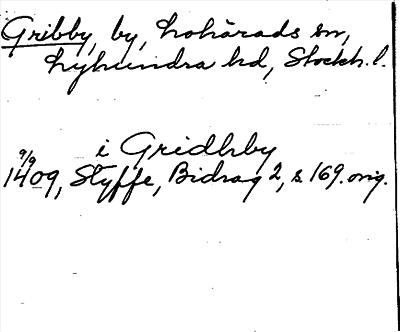 Gribby, by, Lohärads sn,
Lyhundra hd, Stockh. l.
i Gridhby
9/9
1409, Styffe, Bidrag 2, s 169. orig.